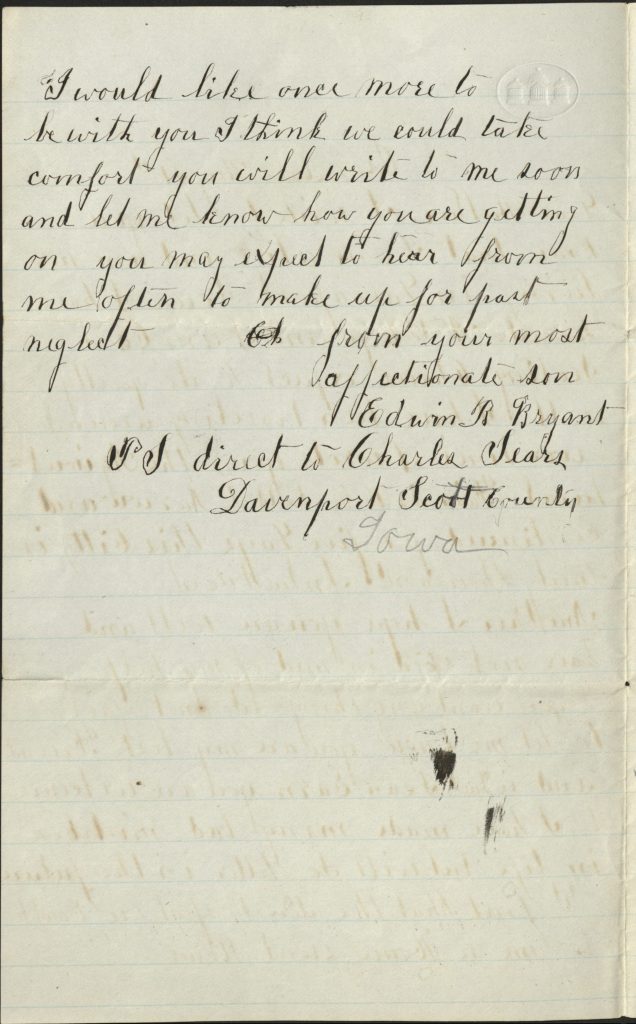 I would like once more to
be with you I think we could take
comfort you will write to me soon
and let me know how you are getting
on you may expect to hear from
me often to make up for past
neglect from your most
affectionate son
Edwin R Bryant
PS direct to Charles Sears
Davenport Scott County
Iowa